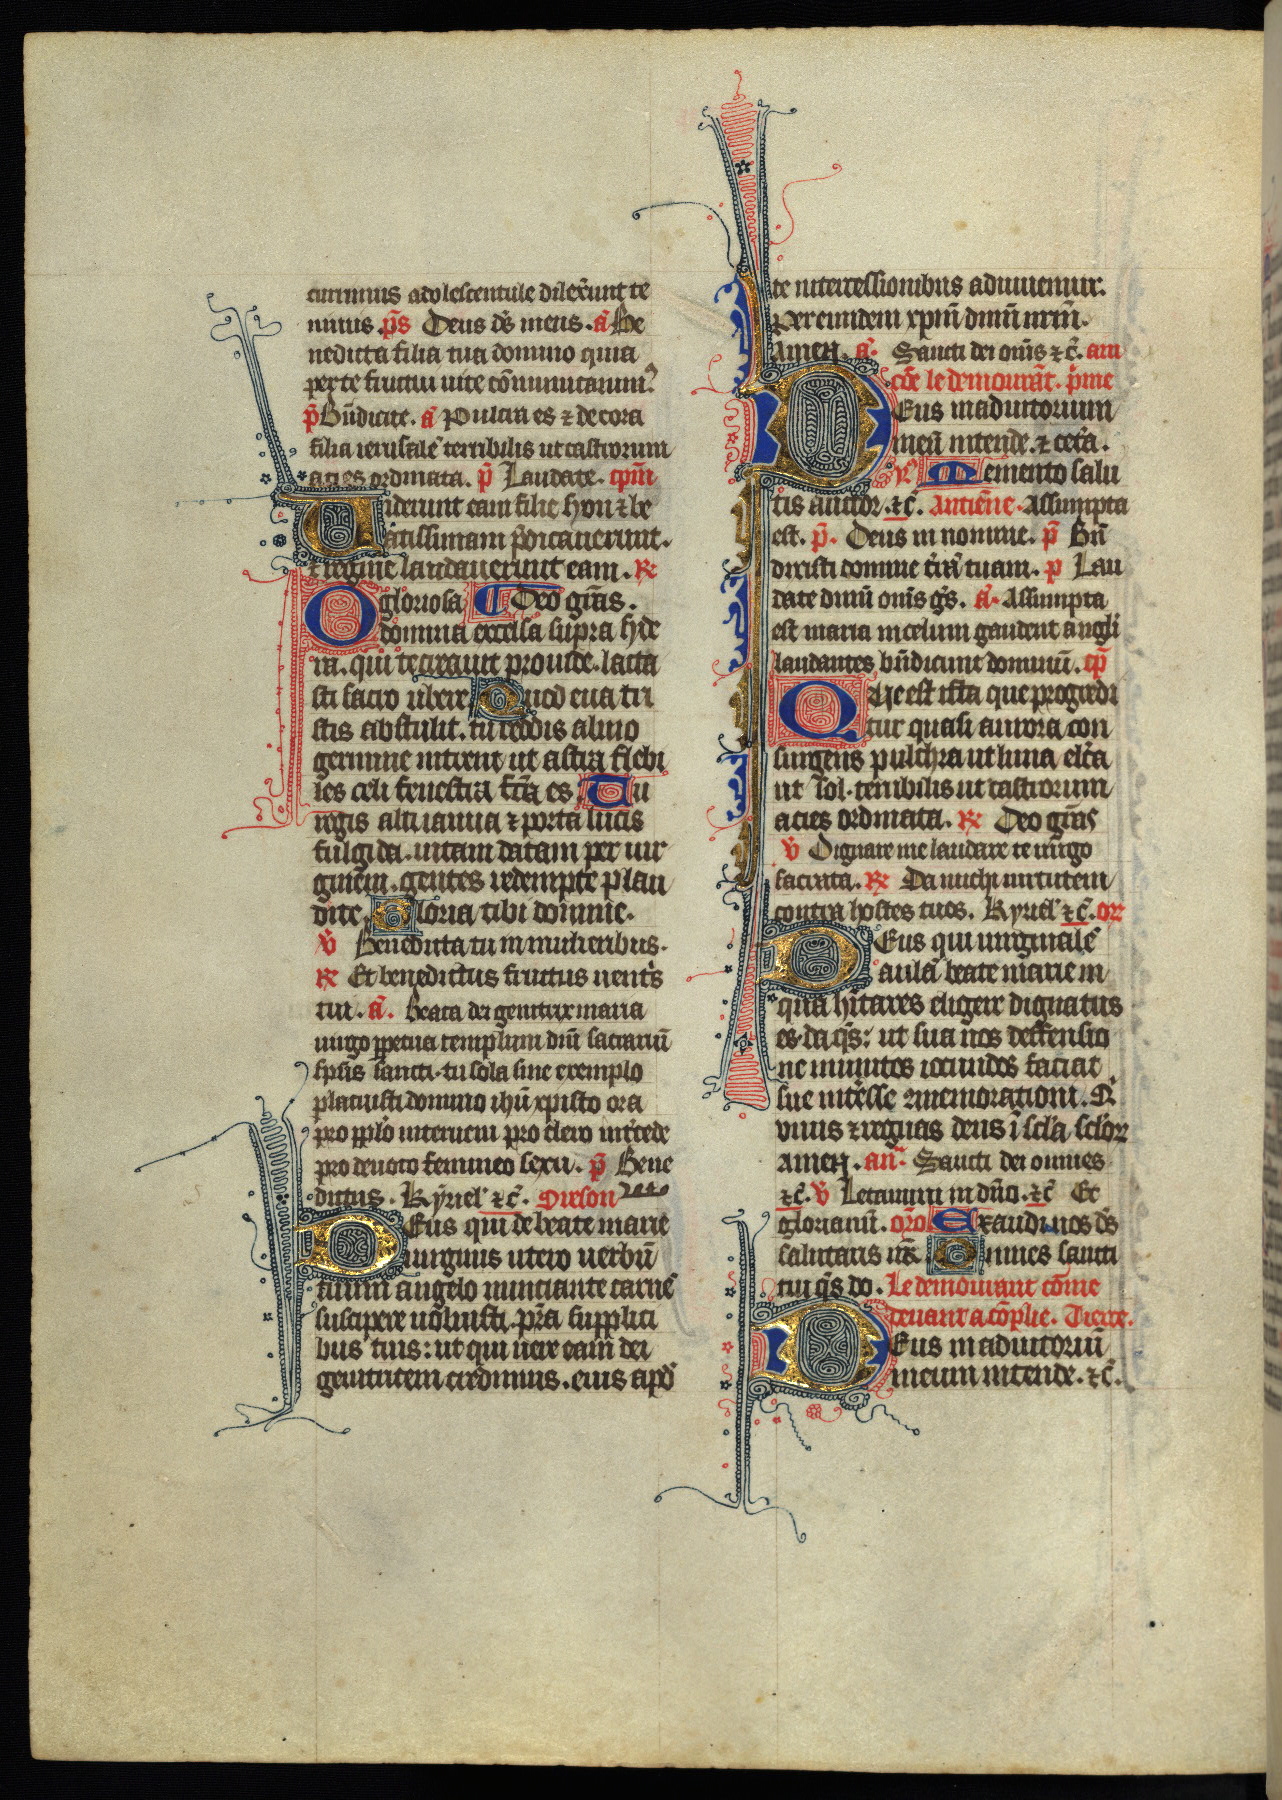 currimus adolescentule dilexerunt te
nimis. p̄s Deus ds̄ meus. ā Be
nedicta filia tua domino quia
per te fructum vite cōmunicauimus
p̄ Bn̄dicite. ā Pulcra es ⁊ decora
filia ierusalē terribilis ut castrorum
acies ordinata. p̄ Laudate. cpm̄
Uiderunt eam filie syon ⁊ be
atissimam predicauerunt.
⁊ regine laudauerunt eam. ℟
O gloriosa Deo grās.
domina excelsa supra side
ra. qui te creauit prouide. lacta
sti sacro ubere Quod eua tri
stis abstulit. tu reddis almo
germine intrent ut astra flebi
les celi fenestra fc̄a es Tu
regis alti ianua ⁊ porta lucis
fulgida. uitam datam per uir
ginem. gentes redempte plau
dite. Gloria tibi domine.
℣ Benedicta tu in mulieribus.
℟ Et benedictus fructus uentr̄s
tui. ā. Beata dei genitrix maria
uirgo ꝑpetua templum dn̄i sacrariū
sp̄ūs sancti. tu sola sine exemplo
placuisti domino ihū xpisto ora
pro pplo interueni pro clero int̄cede
pro deuoto femineo sexu. p̄ Bene
dictus. Kyriel' ⁊c̄. Oreson
Deus qui de beate marie
uirginis utero uerbū
tuum angelo nunciante carnē
suscipere uoluisti. pr̄a supplici
bus tuis: ut qui uere eam dei
genitricem credimus. eius apd̄
te intercessionibus adiuuemur.
Per eundem xpm̄ dnm̄ nrm̄.
Amen. ā. Sancti dei om̄s ⁊c̄. am
cōe le demourāt. p̄me
Deus in adiutorium
meū intende. ⁊ cetā.
Memento salu
tis auctor. ⁊c̄. Antiēne. Assumpta
est. p̄. Deus in nomine. p̄ Bn̄
dixisti domine t̄rā tuam. p̄ Lau
date dnm̄ om̄s gs̄. ā. Assumpta
est maria in celum gaudent angli
laudantes bn̄dicunt dominū. cp̄
Que est ista que progredi
tur quasi aurora con
surgens pulchra ut luna elc̄a
ut sol. terribilis ut castrorum
acies ordinata. ℟ Deo grās
℣ Dignare me laudare te uirgo
sacrata. ℟ Da michi uirtutem
contra hostes tuos. Kyriel' ⁊c̄. or
Deus qui uirginalē
aulā beate marie in
qua hītares eligere dignatus
es. da qs̄: ut sua nos deffensio
ne munitos iocundos faciat
sue int̄esse 9memorationi. Q̄
viuis ⁊ regnas deus ī scl̄a scl̄or
amen. an̄. Sancti dei omnes
⁊c̄. ℣ Letamini in dn̄o. ⁊c̄ Et
gloriamī. orō Exaudi nos ds̄
salutaris nr̄ Omnes sancti
tui qs̄ do. Le demourant cōme
deuant a cōplie. Tierce.
Deus in adiutoriū
meum intende. ⁊c̄.